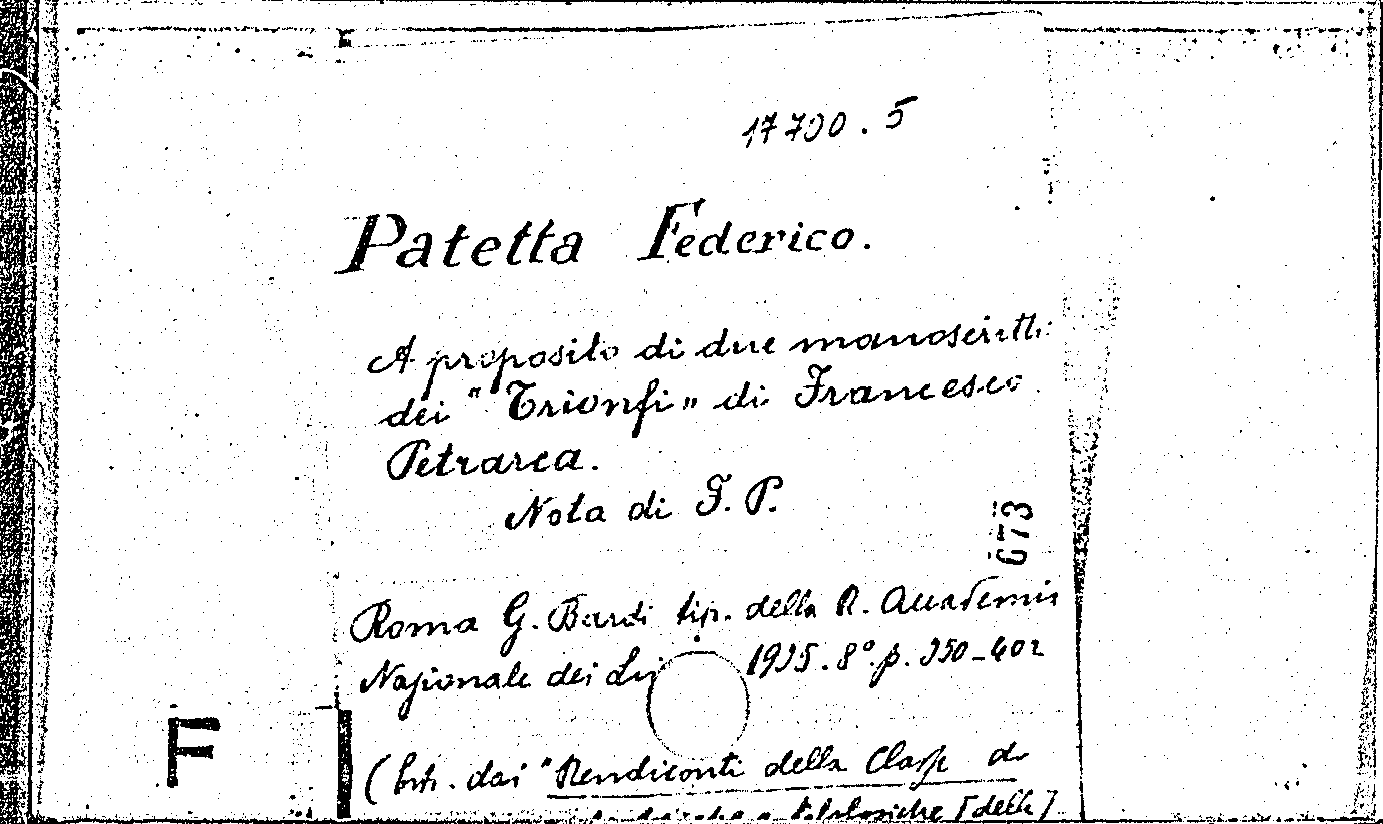 17790.5
Patetta Federico.
A proposito di due manoscritti
dei "Trionfi" di Francesco
Petrarca.
Nota di F. P.
673
Roma G. Bardi tip. della R. Accademia
Nazionale dei Li 1925. 8° p. 350-402
F
(Estr. dai "Rendiconti della Classe di
filologiche [della]